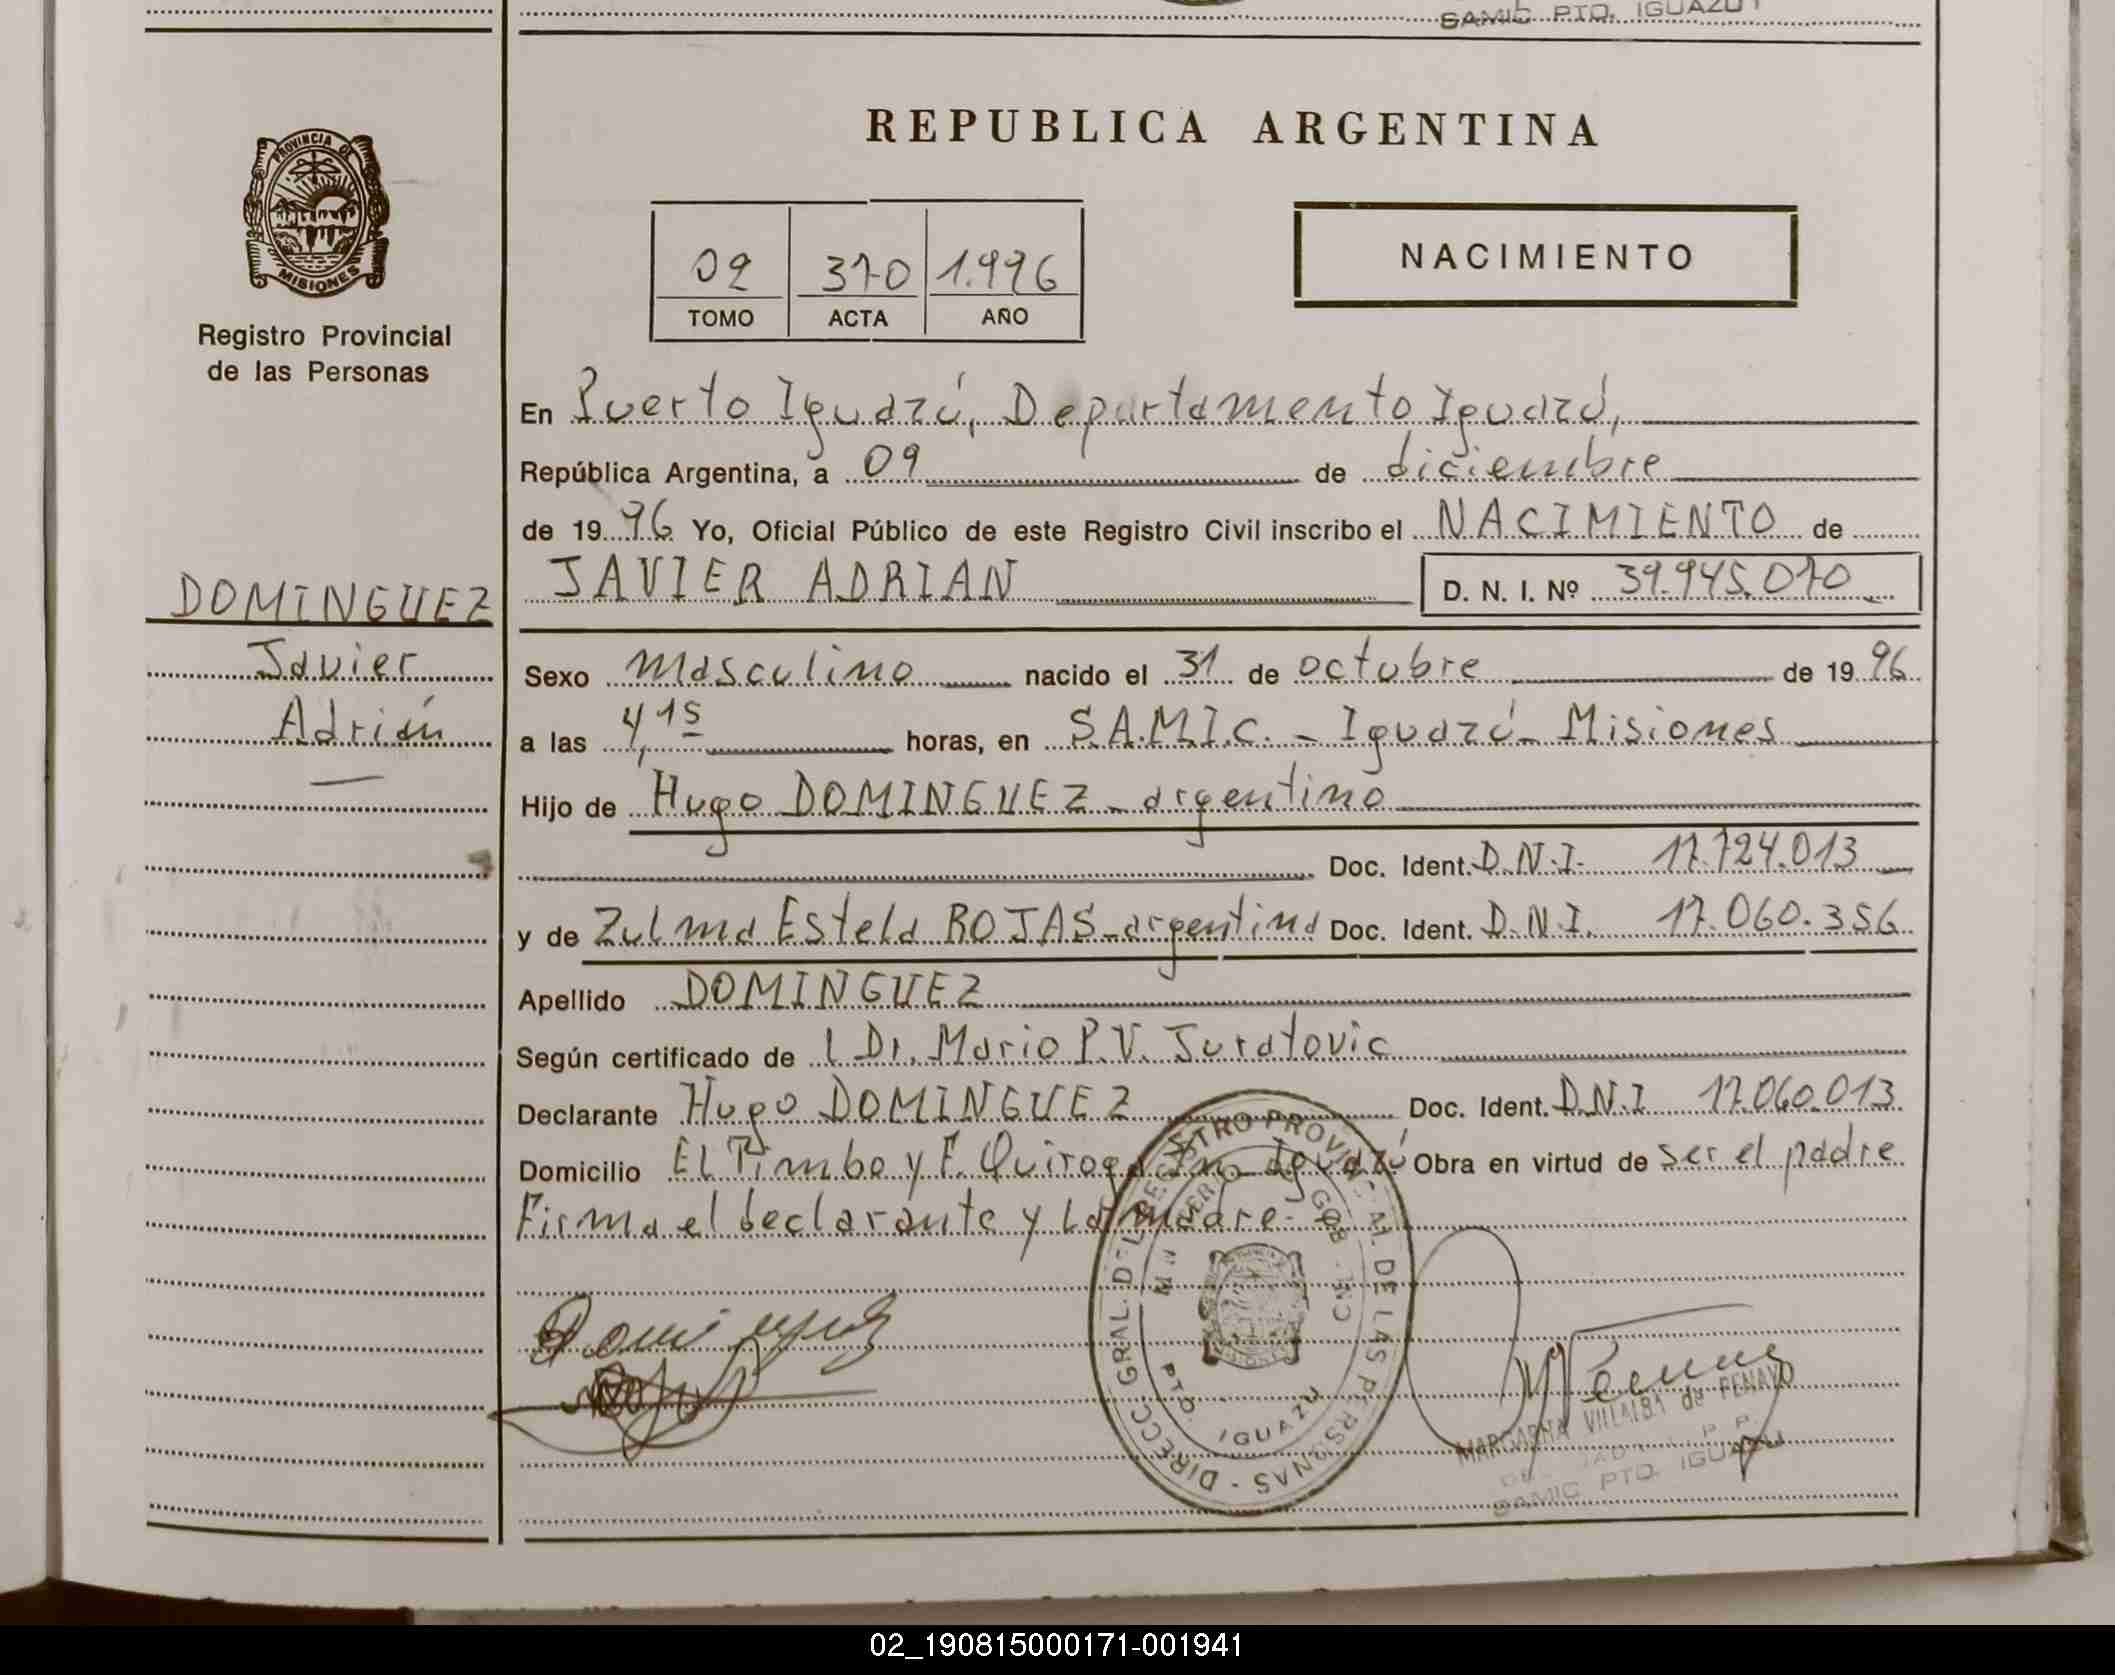 SAMIC PTO. IGUAZU
REPUBLICA ARGENTINA
PROVINCIA DE
MISIONES
Registro Provincial
de las Personas
02 370 1.996
TOMO ACTA AÑO
NACIMIENTO
En Puerto Iguazú, Departamento Iguazú,
República Argentina, a 09 de diciembre
de 1996 Yo, Oficial Público de este Registro Civil inscribo el NACIMIENTO de
DOMINGUEZ
Javier
Adrián
JAVIER ADRIAN D. N. I. Nº 39.945.070
Sexo masculino nacido el 31 de octubre de 1996
a las 4,15 horas, en S.A.M.I.C. - Iguazú - Misiones
Hijo de Hugo DOMINGUEZ - argentino
Doc. Ident. D.N.I. 17.724.013
y de Zulma Estela ROJAS - argentina Doc. Ident. D.N.I. 17.060.356
Apellido DOMINGUEZ
Según certificado de l Dr. Mario P.V. Juratovic
Declarante Hugo DOMINGUEZ Doc. Ident. D.N.I 17.060.013
Domicilio El Timbo y F. Quiroga Iguazú Obra en virtud de ser el padre
Firma el declarante y la madre.
DIRECC. GRAL. DEL REGISTRO PROVINCIAL DE LAS PERSONAS
PTO. IGUAZU
MARGARITA VILLALBA de PENAYO
SAMIC PTO. IGUAZU
02_190815000171-001941